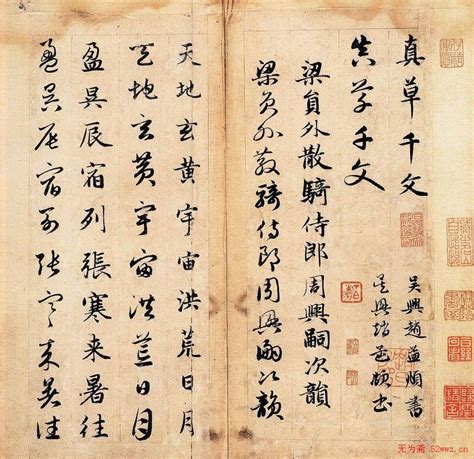 真草千文
真草千文
吳興趙孟頫書
吳興趙孟頫書
梁員外散騎侍郎周興嗣次韻
梁員外散騎侍郎周興嗣次韻
天地玄黃宇宙洪荒日月
天地玄黃宇宙洪荒日月
盈昃辰宿列張寒来暑往
盈昃辰宿列張寒来暑往
无为斋 52wwz.cn